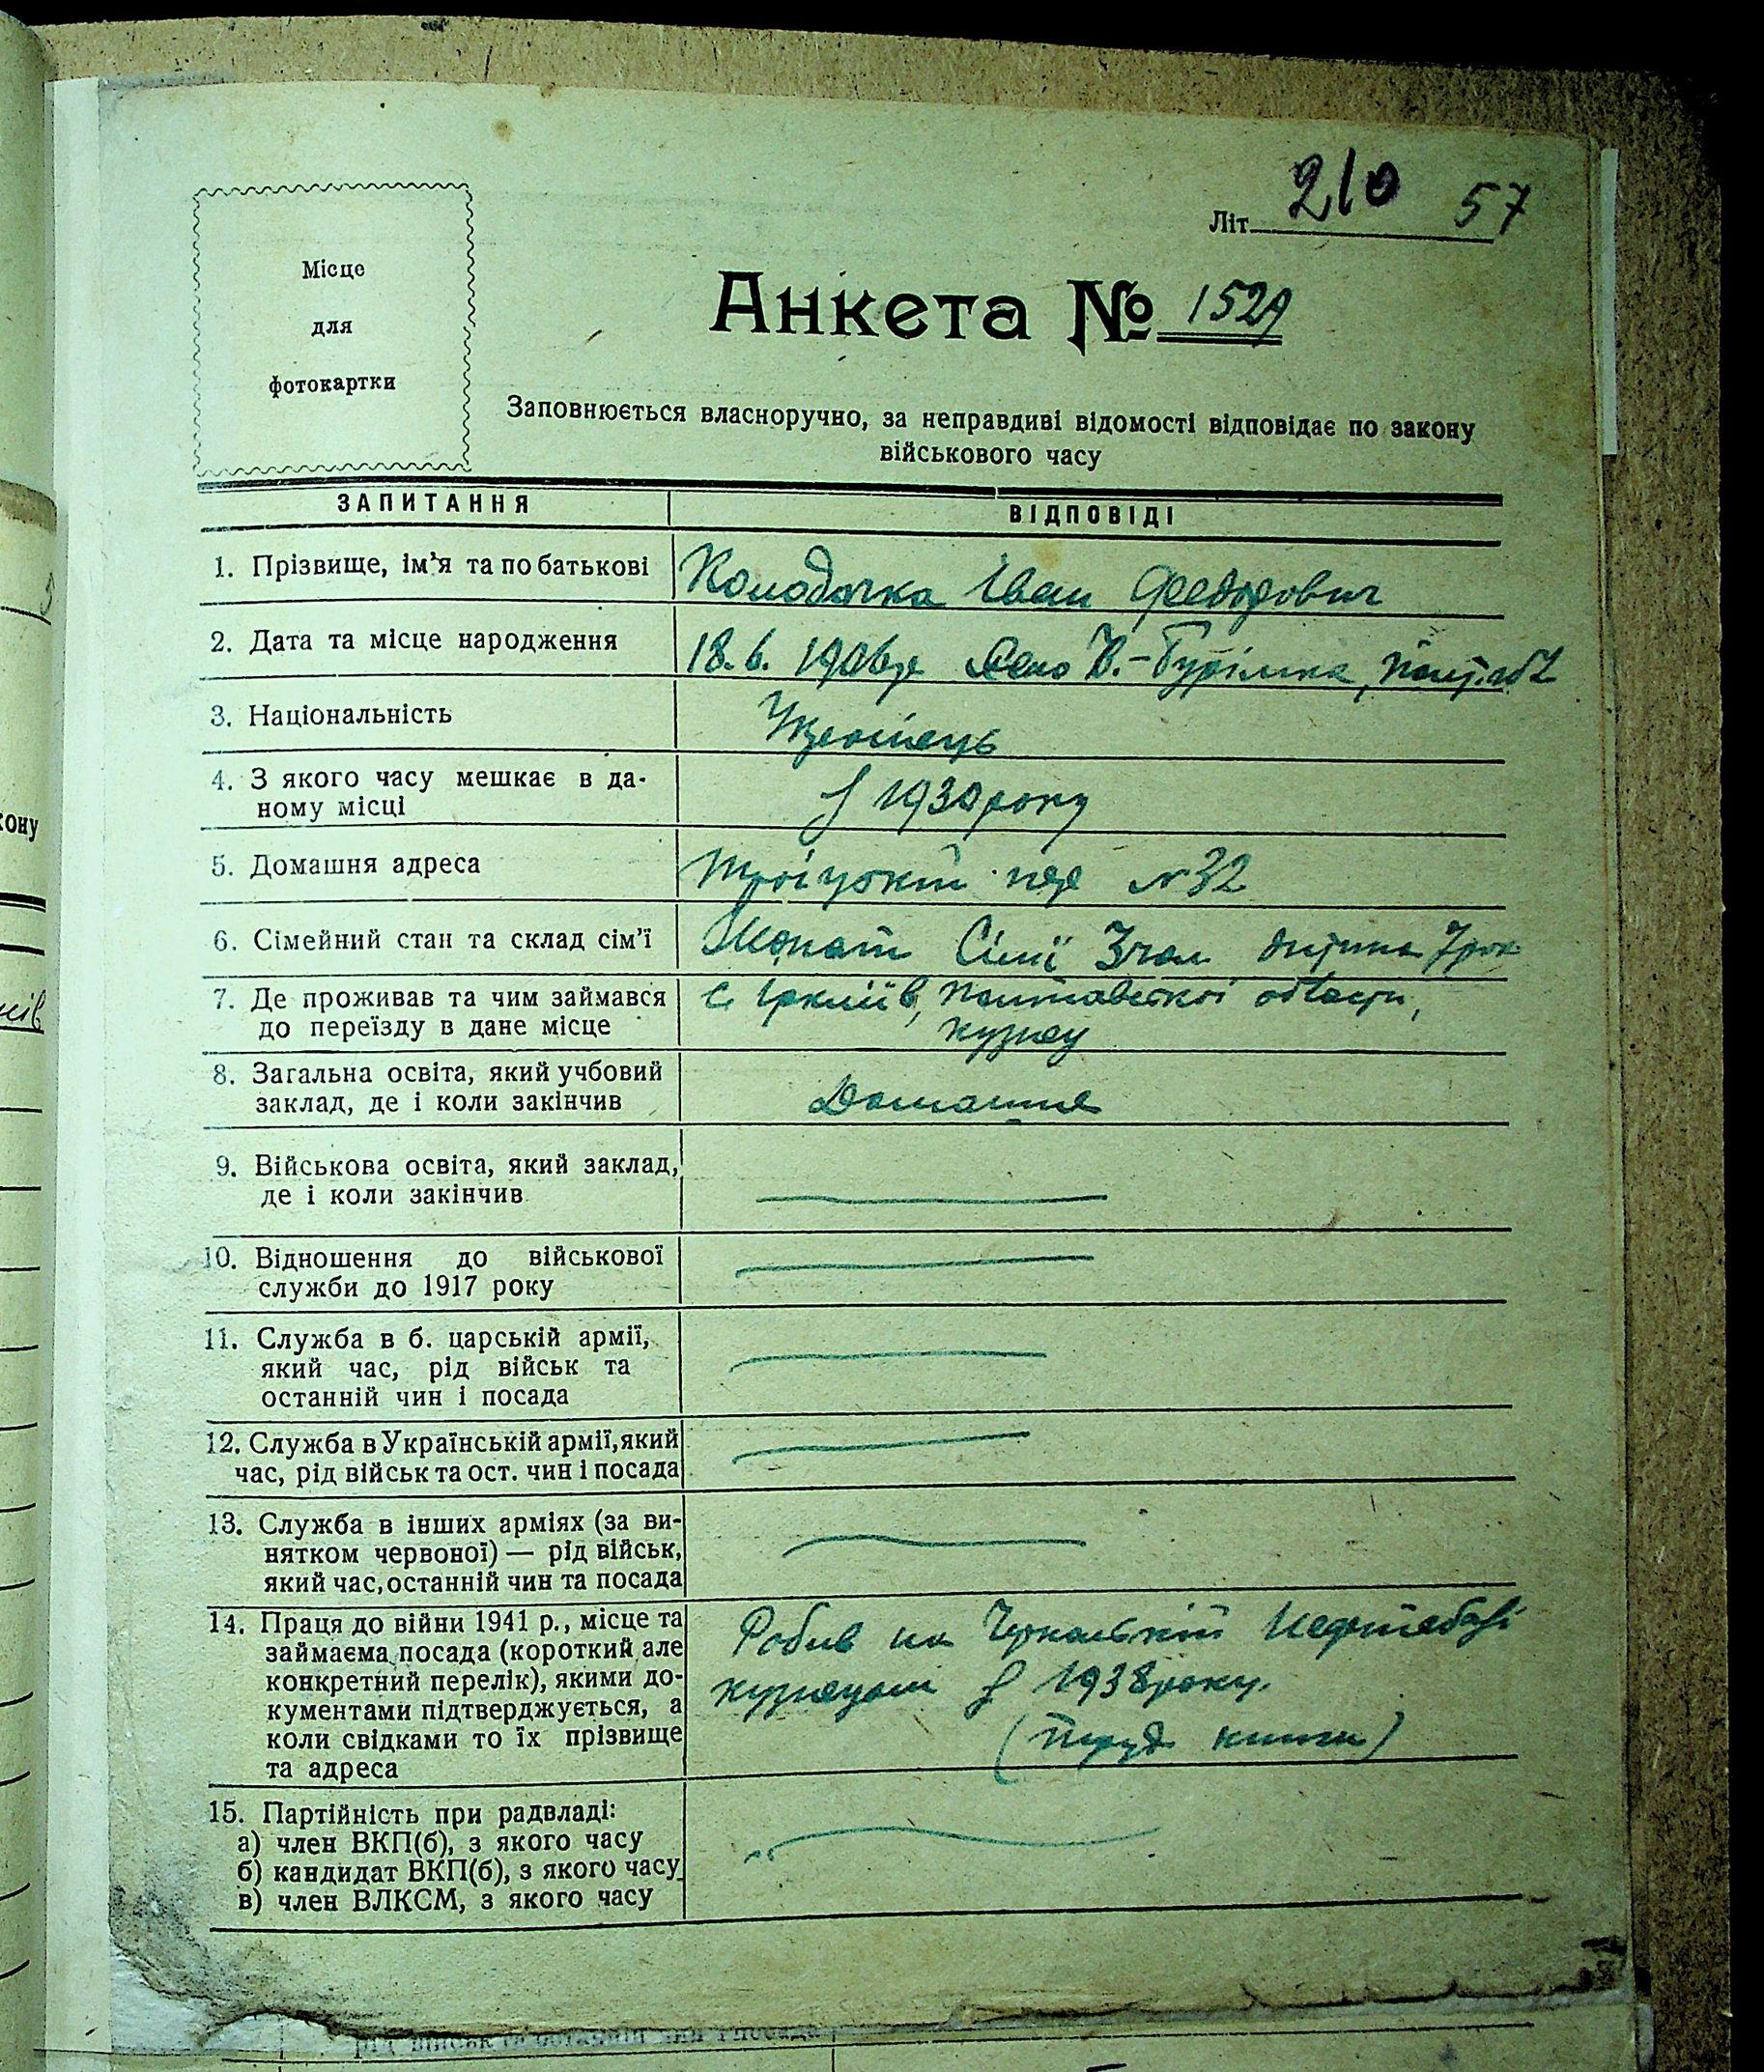 Літ. 210 57
Місце
для
фотокартки
Анкета № 1529
Заповнюється власноручно, за неправдиві відомості відповідає по закону
військового часу
ЗАПИТАННЯ ВІДПОВІДІ
1. Прізвище, ім'я та по батькові Колодочка Іван Федорович
2. Дата та місце народження 18.6. 1906р Село
3. Національність Українець
4. З якого часу мешкає в да-
ному місці з 1930 року
5. Домашня адреса Троіцкий пер №32
6. Сімейний стан та склад сім'ї Жонат Сімї 3 чол дитина 7 рок
7. Де проживав та чим займався с. Іркліїв, Полтавської області,
до переїзду в дане місце кузнец
8. Загальна освіта, який учбовий
заклад, де і коли закінчив Домашне
9. Військова освіта, який заклад,
де і коли закінчив
10. Відношення до військової
служби до 1917 року
11. Служба в б. царській армії,
який час, рід військ та
останній чин і посада
12. Служба в Українській армії, який
час, рід військ та ост. чин і посада
13. Служба в інших арміях (за ви-
нятком червоної) — рід військ,
який час, останній чин та посада
14. Праця до війни 1941 р., місце та Робив на Черкаській Нефтебазі
займаєма посада (короткий але
конкретний перелік), якими до- кузнецом з 1938 року.
кументами підтверджується, а
коли свідками то їх прізвище (Труд книги)
та адреса
15. Партійність при радвладі:
а) член ВКП(б), з якого часу
б) кандидат ВКП(б), з якого часу
в) член ВЛКСМ, з якого часу
рід військ та останній чин і посада